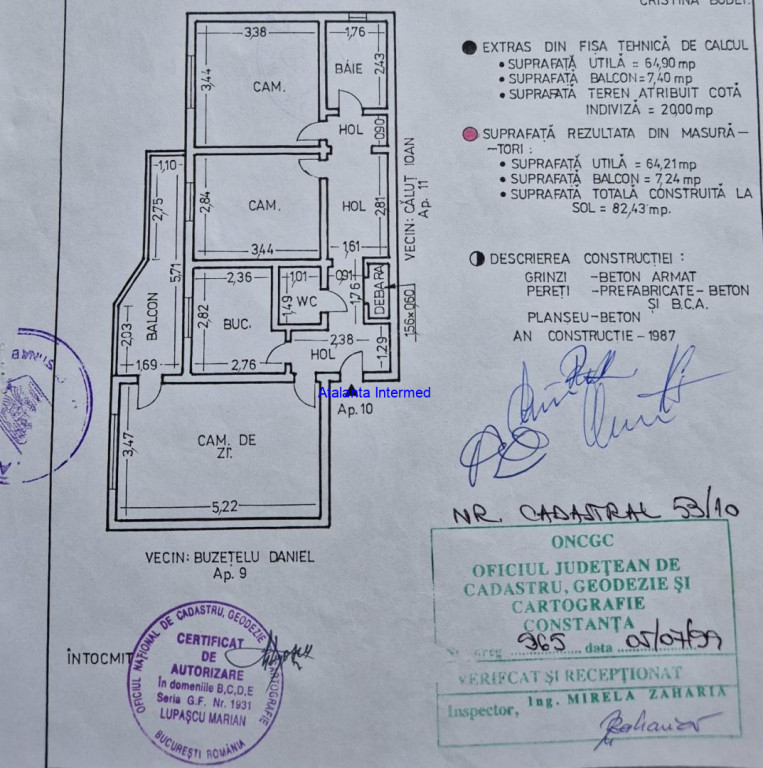 CRISTINA BUDEI.
EXTRAS DIN FIȘA TEHNICĂ DE CALCUL
• SUPRAFAȚĂ UTILĂ = 64,90 mp
• SUPRAFAȚĂ BALCON = 7,40 mp
• SUPRAFAȚĂ TEREN ATRIBUIT COTĂ
INDIVIZĂ = 20,00 mp
SUPRAFAȚĂ REZULTATA DIN MASURĂ-
-TORI :
• SUPRAFAȚĂ UTILĂ = 64,21 mp
• SUPRAFAȚĂ BALCON = 7,24 mp
• SUPRAFAȚĂ TOTALĂ CONSTRUITĂ LA
SOL = 82,43 mp.
DESCRIEREA CONSTRUCȚIEI :
GRINZI -BETON ARMAT
PEREȚI -PREFABRICATE-BETON
ȘI B.C.A.
PLANSEU-BETON
AN CONSTRUCTIE-1987
3,38
3,44
CAM.
1,76
BĂIE
2,43
HOL
0,90
2,84
CAM.
3,44
HOL
2,81
1,61
VECIN: CĂLUȚ IOAN
Ap. 11
1,10
2,75
5,71
BALCON
2,03
1,69
2,36
2,82
BUC.
2,76
1,01
1,49
WC
0,91
1,76
DEBARA
1,56×0,60
2,38
HOL
1,29
Atalanta Intermed
Ap. 10
3,47
CAM. DE
ZI.
5,22
VECIN: BUZEȚELU DANIEL
Ap. 9
ÎNTOCMIT
OFICIUL NAȚIONAL DE CADASTRU, GEODEZIE
CARTOGRAFIE
BUCUREȘTI ROMÂNIA
CERTIFICAT
DE
AUTORIZARE
În domeniile B,C,D,E
Seria G.F. Nr. 1931
LUPAȘCU MARIAN
NR. CADASTRAL 53/10
ONCGC
OFICIUL JUDEȚEAN DE
CADASTRU, GEODEZIE ȘI
CARTOGRAFIE
CONSTANȚA
965 data 05/07/99
VERIFCAT ȘI RECEPȚIONAT
Inspector, Ing. MIRELA ZAHARIA